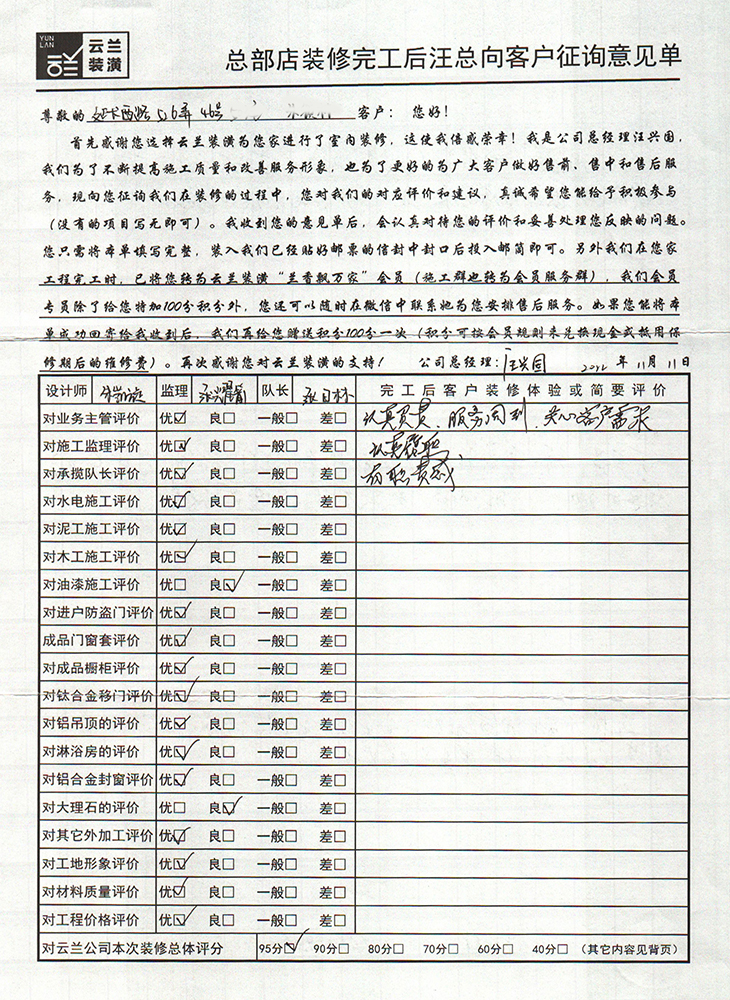 YUN LAN
云兰装潢
总部店装修完工后汪总向客户征询意见单
尊敬的 延长西路 56弄 46号 客户： 您好！
首先感谢您选择云兰装潢为您家进行了室内装修，这使我倍感荣幸！我是公司总经理汪兴国，
我们为了不断提高施工质量和改善服务形象，也为了更好的为广大客户做好售前、售中和售后服
务，现向您征询我们在装修的过程中，您对我们的对应评价和建议，真诚希望您能给予积极参与
（没有的项目写无即可）。我收到您的意见单后，会认真对待您的评价和妥善处理您反映的问题。
您只需将本单填写完整，装入我们已经贴好邮票的信封中封口后投入邮筒即可。另外我们在您家
工程完工时，已将您转为云兰装潢“兰香飘万家”会员（施工群也转为会员服务群），我们会员
专员除了给您特加100分积分外，您还可以随时在微信中联系她为您安排售后服务。如果您能将本
单成功回寄给我收到后，我们再给您赠送积分100分一次（积分可按会员规则来兑换现金或抵用保
修期后的维修费）。再次感谢您对云兰装潢的支持！ 公司总经理：汪兴国 2022 年 11月 11日
设计师 监理 队长 完工后客户装修体验或简要评价
对业务主管评价 优☑ 良□ 一般□ 差□ 认真负责、服务周到、关心客户需求
对施工监理评价 优☑ 良□ 一般□ 差□ 认真
对承揽队长评价 优☑ 良□ 一般□ 差□ 有职责感
对水电施工评价 优☑ 良□ 一般□ 差□
对泥工施工评价 优☑ 良□ 一般□ 差□
对木工施工评价 优☑ 良□ 一般□ 差□
对油漆施工评价 优□ 良☑ 一般□ 差□
对进户防盗门评价 优☑ 良□ 一般□ 差□
成品门窗套评价 优☑ 良□ 一般□ 差□
对成品橱柜评价 优☑ 良□ 一般□ 差□
对钛合金移门评价 优☑ 良□ 一般□ 差□
对铝吊顶的评价 优☑ 良□ 一般□ 差□
对淋浴房的评价 优☑ 良□ 一般□ 差□
对铝合金封窗评价 优☑ 良□ 一般□ 差□
对大理石的评价 优□ 良☑ 一般□ 差□
对其它外加工评价 优☑ 良□ 一般□ 差□
对工地形象评价 优☑ 良□ 一般□ 差□
对材料质量评价 优☑ 良□ 一般□ 差□
对工程价格评价 优☑ 良□ 一般□ 差□
对云兰公司本次装修总体评分 95分☑ 90分□ 80分□ 70分□ 60分□ 40分□ （其它内容见背页）